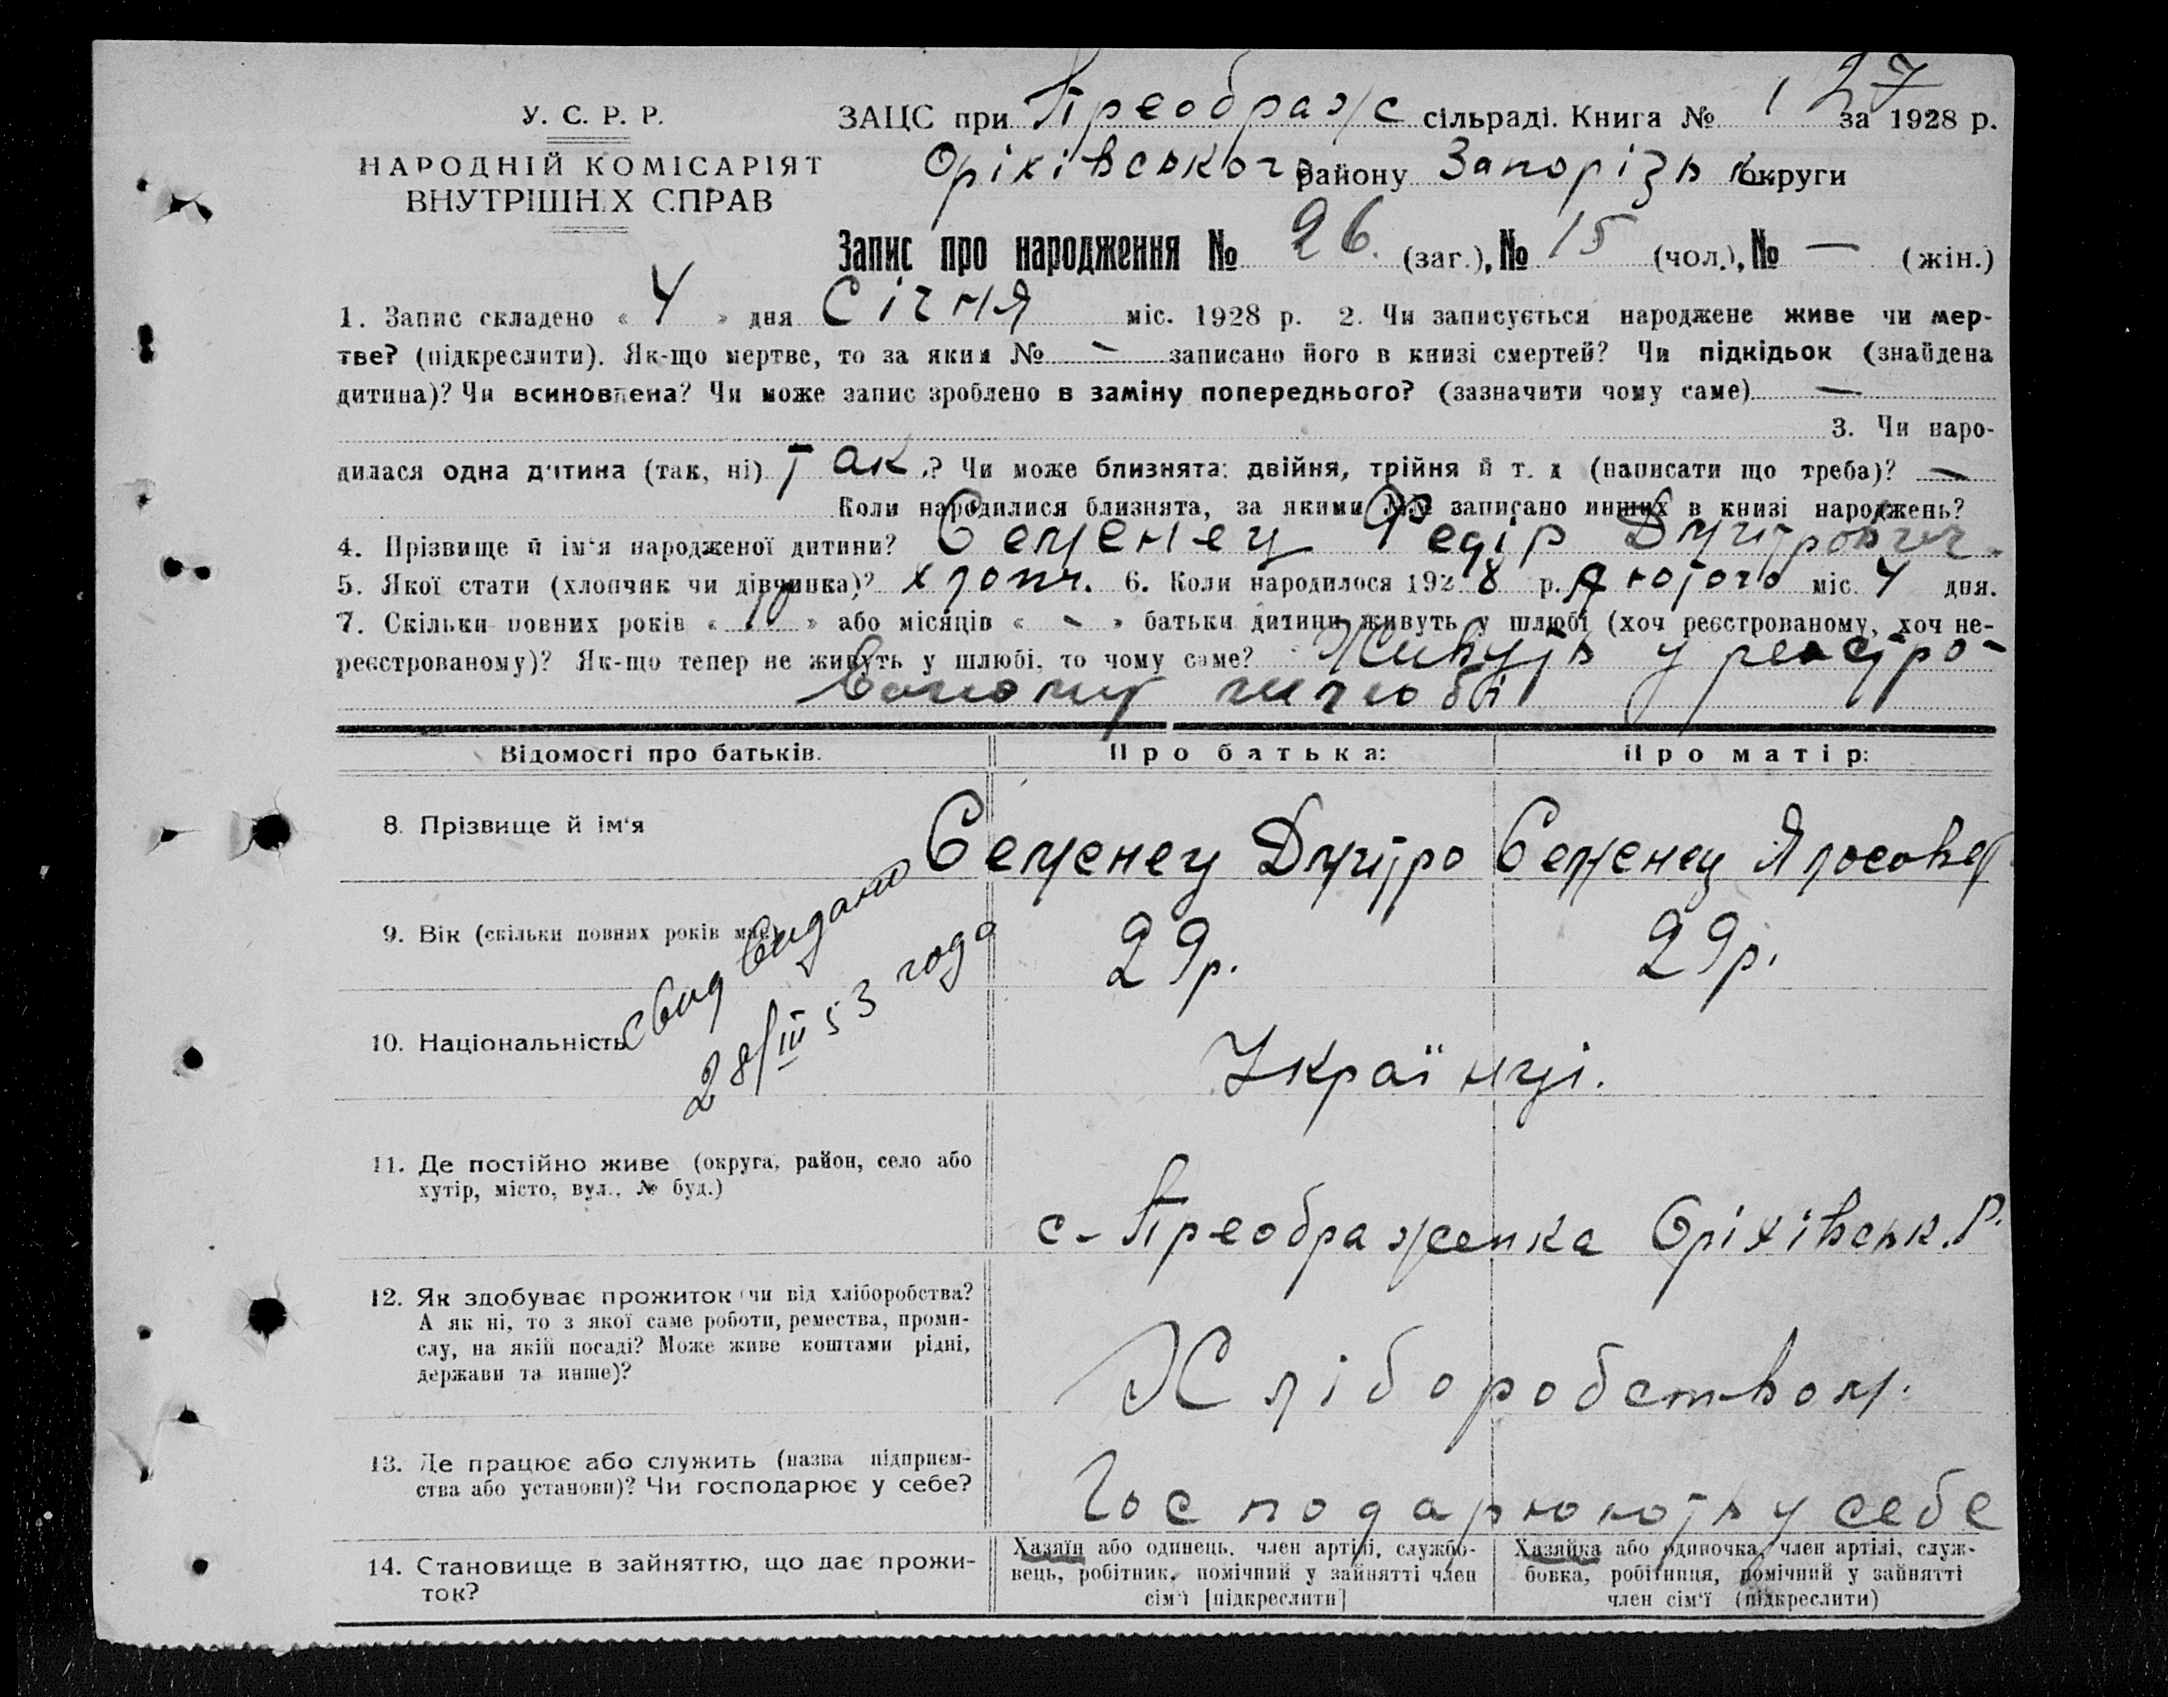 27
У. С. Р. Р.
НАРОДНІЙ КОМІСАРІЯТ
ВНУТРІШНІХ СПРАВ
ЗАЦС при Преображ сільраді. Книга № 1 за 1928 р.
Оріхівського району Запорізьк округи
Запис про народження № 26. (заг.), № 15 (чол.), № — (жін.)
1. Запис складено « 4 » дня Січня міс. 1928 р. 2. Чи записується народжене живе чи мер-
тве? (підкреслити). Як-що мертве, то за яким № - записано його в книзі смертей? Чи підкідьок (знайдена
дитина)? Чи всиновлена? Чи може запис зроблено в заміну попереднього? (зазначити чому саме) —
3. Чи наро-
дилася одна дитина (так, ні) Так.? Чи може близнята: двійня, трійня й т. д (написати що треба)? —
Коли народилися близнята, за якими №№ записано инших в книзі народжень?
4. Прізвище й ім'я народженої дитини? Семенец Федір Дмитрович.
5. Якої стати (хлопчик чи дівчинка)? хлопч. 6. Коли народилося 1928 р. Лютого міс. 4 дня.
7. Скільки повних років « 10 » або місяців « - » батьки дитини живуть у шлюбі (хоч реєстрованому, хоч не-
реєстрованому)? Як-що тепер не живуть у шлюбі, то чому саме? Живуть у реєстро-
ваному шлюбі
Відомості про батьків. Про батька: Про матір:
8. Прізвище й ім'я Семенец Дмитро Семенец
9. Вік (скільки повних років має) 29р. 29р.
свид выдано
28/III 53 года
10. Національність Українці.
11. Де постійно живе (округа, район, село або
хутір, місто, вул., № буд.)
с-Преображенка Оріхівськ. Р.
12. Як здобуває прожиток (чи від хліборобства?
А як ні, то з якої саме роботи, ремества, проми-
слу, на якій посаді? Може живе коштами рідні,
держави та инше)?
Хліборобством.
13. Де працює або служить (назва підприєм-
ства або установи)? Чи господарює у себе?
Господарюють у себе
14. Становище в зайняттю, що дає прожи-
ток?
Хазяїн або одинець, член артілі, службо-
вець, робітник, помічний у зайнятті член
сім'ї [підкреслити]
Хазяйка або одиночка, член артілі, служ-
бовка, робітниця, помічний у зайнятті
член сім'ї (підкреслити)